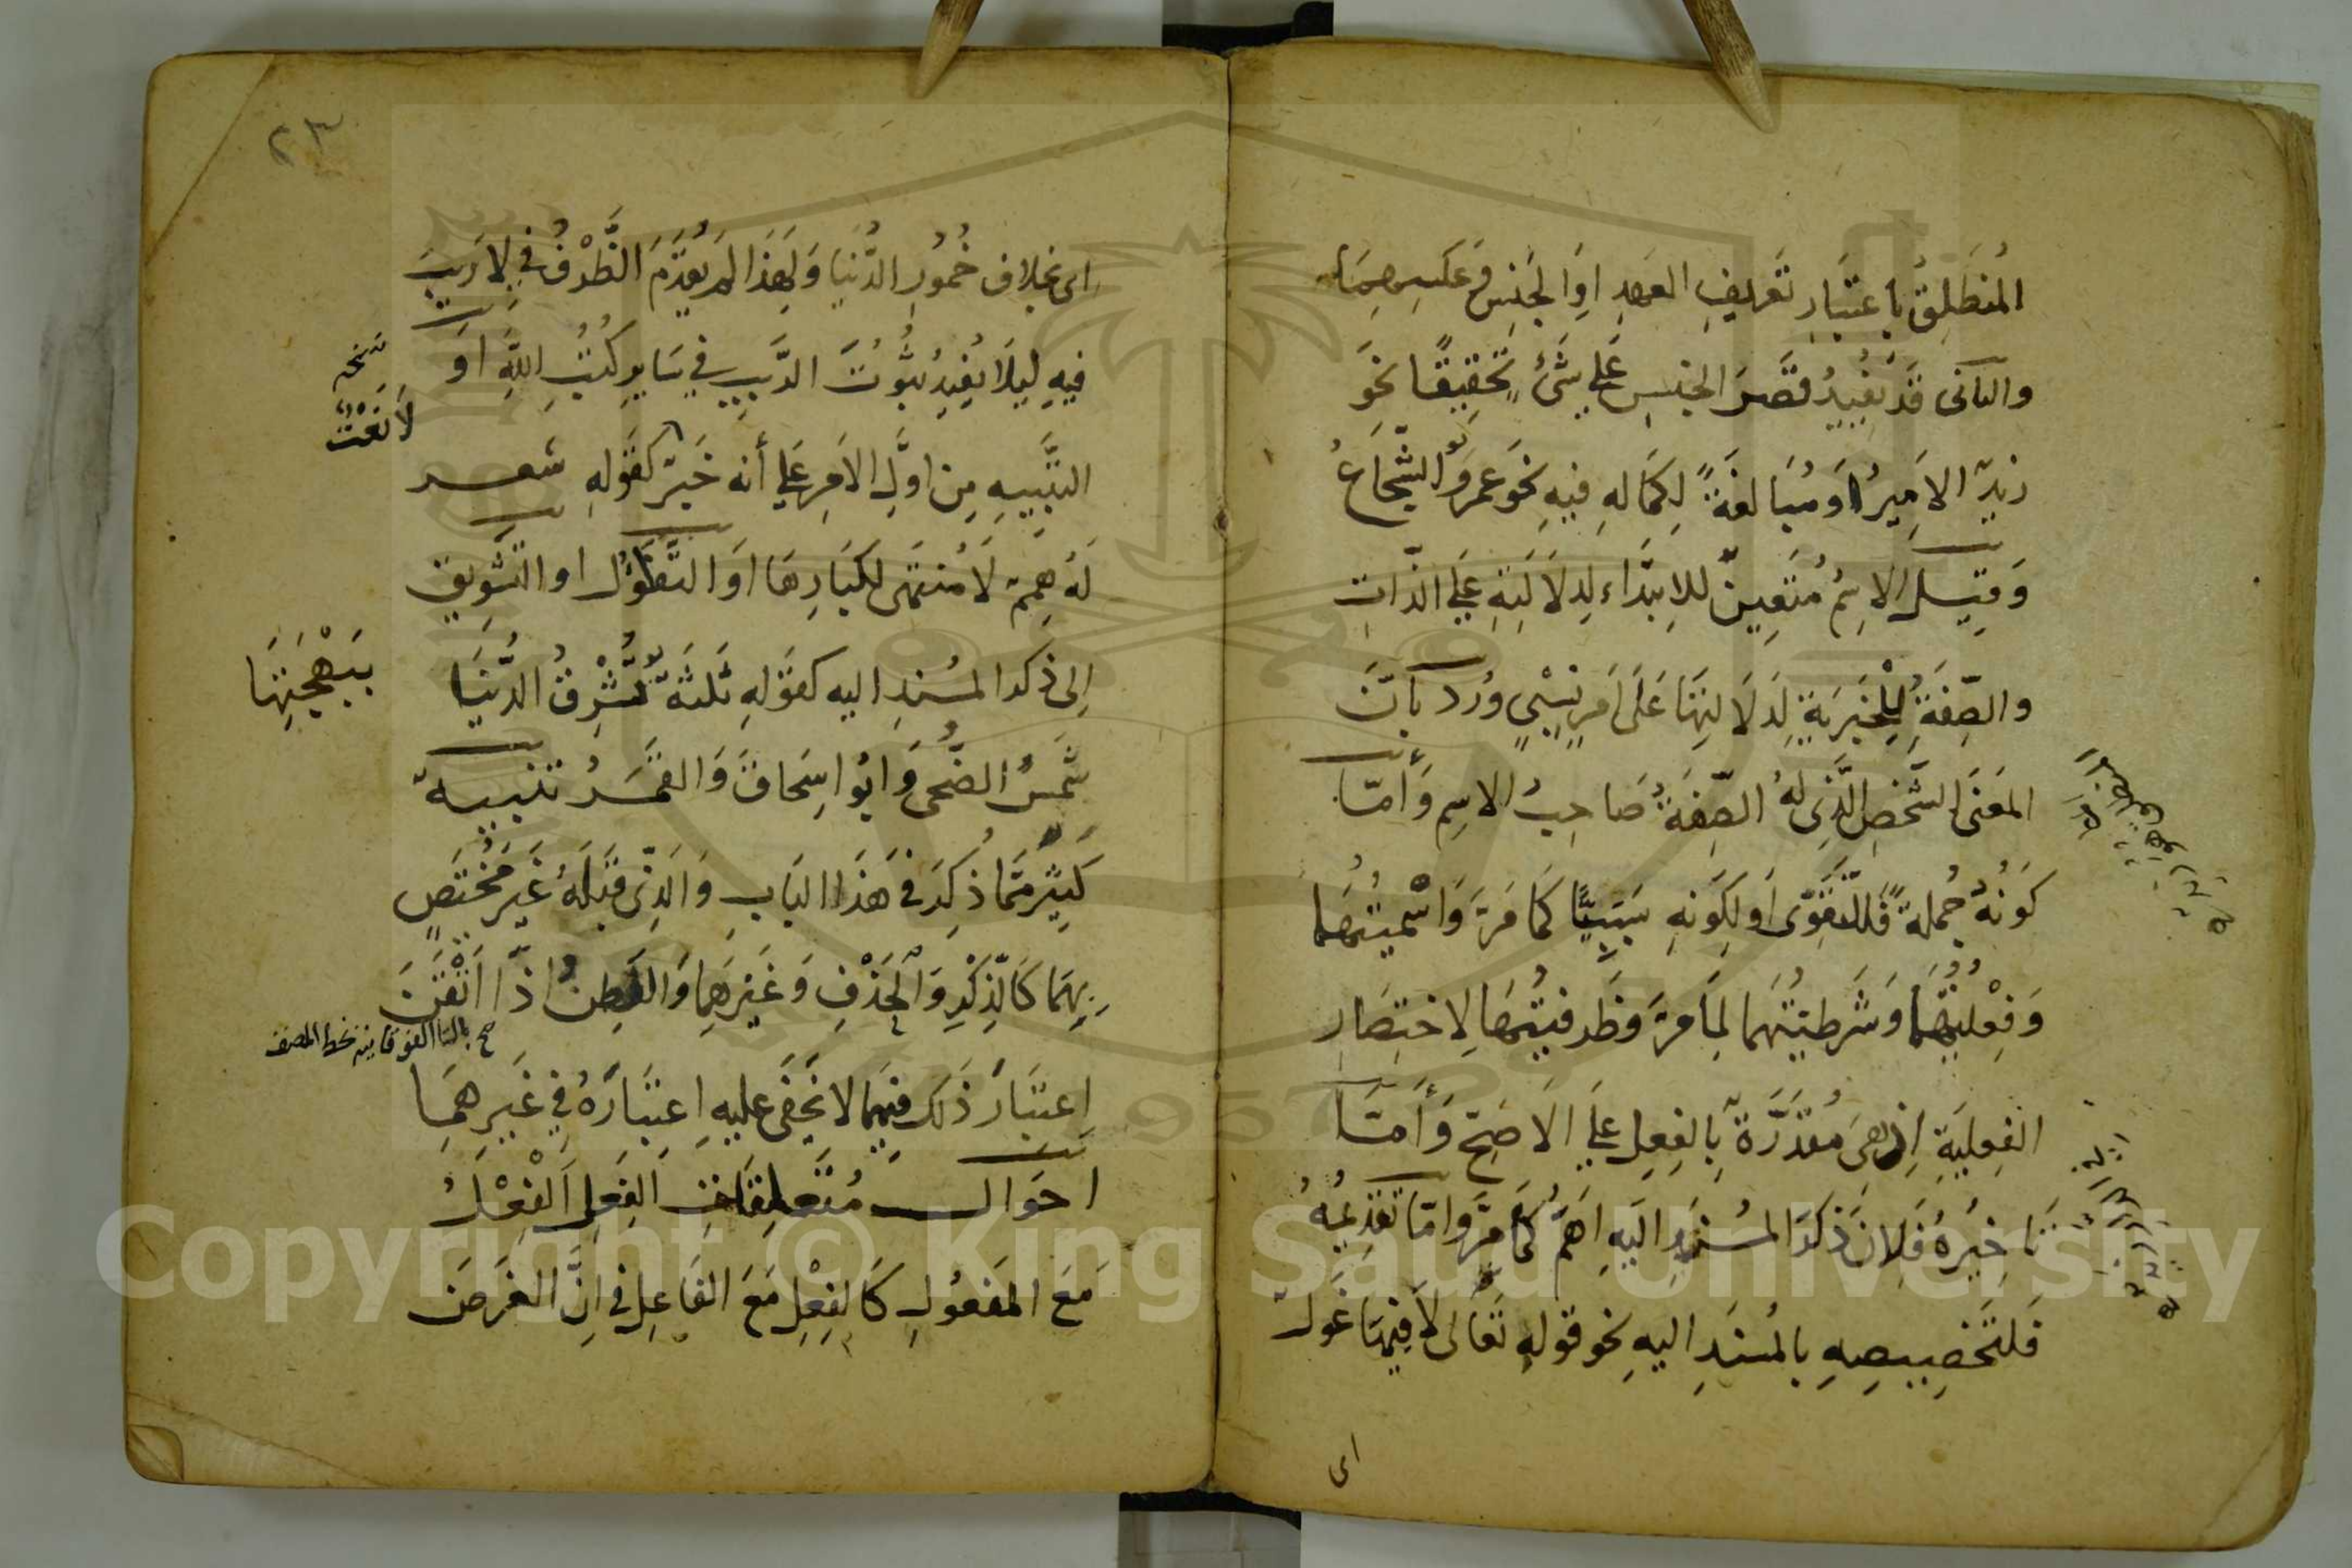 المُنطَلِقُ بِاعتِبَارِ تَعريفِ العَهدِ اوِ الجِنسِ وَعَكسِهِمَا
والثانى قَد يُفِيدُ قَصرَ الجنسِ عَلى شَئٍ تحقِيقًا نحَو
زيدٌ الاَميرُ اَو مُبَالغَةً لِكمَالهِ فيهِ نحَو عَمروٌ الشُّجَاعُ
وَقِيلَ الاِسمُ مُتعيِنٌ للابتدَاء لِدلاَلَتِهِ عَلى الذّاتِ
والصِّفَةُ لِلْخَبَريَّةِ لِدَلَالتِهَا عَلَى اَمرٍ نِسْبِيٍ وَرُدَّ بِاَنّ
المَعَنى الشَّخصُ الَّذِى لهُ الصِّفَةُ صَاحِبُ الاسِم وَأمّا
كَونُهُ جُملةً فَللتَقَوّى اَو لِكَونهِ سَبَبيًّا كَمَا مَرَّ وَاسْميتُهَا
وَفِعْليتُهَا وَشَرطيتُهَا لِمَا مَرَّ وَظَرفيتُهَا لِاختِصَارِ
الفِعليَةِ اِذ هِىَ مُقدَّرَةٌ بِالفِعلِ عَلى الاَصَحّ وَأَمّا
تَاخِيُرهُ فَلاِنَ ذِكرَ المُسنَدِ اليَهِ اَهَمُّ كَمَا مَرَّ وَامّا تَقدِيمُهُ
فَلتَخصِيصِهِ بالمُسنَدِ اليهِ نحو قولهِ تَعَالى لاَ فِيهَا غَولٌ
اى
٢٣
اى بخلافِ خُمُورِ الدُّنيَا وَلهَذَا لم يُقَدَّمَ الظَّرْفُ فِى لَا رَيبَ
فِيهِ لِيلَا يُفِيدُ ثبُوُتَ الرَّيبِ فى سَايرِ كُتُبِ اللهِ اَو
نسخه
لاَ نَعْتٌ
التَنبِيهِ مِن اوَّلِ الاَمرِ عَلى أنه خَبَرٌ كَقَولهِ شعر
لَهُ هِمَمٌ لَا مُنتَهَى لِكبَارِهَا اوَ التَفَاؤُل او التَشَويقِ
اِلى ذكر المسُندِ اليه كقَولهِ ثَلثةٌ تُشْرِقُ الدُّنيَا
بِبَهْجَتِهَا
شَمسُ الضّحَى وَابُو اسِحَاقَ وَالقَمَرُ تنبيهٌ
كَثيرٌ مَمَّا ذُكِرَ فى هَذَا البَابِ وَالَّذِى قَبَلهُ غَيرَ مُختَصٍ
بِهِمَا كَالذِكْرِ وَالحَذْفِ وَغَيرِهِمَا وَالفَطِنُ اِذَا اَتْقَنَ
صح بالتا الفوقانية بخط المصنف
اِعتبَارَ ذَلكَ فيهِمَا لا يَخفَى عليهِ اِعتِبَارَهُ فى غَيرِهمَا
احَوال مُتعلقَاتِ الفِعلِ اَلفِعْلُ
مَعَ المَفعُولِ كَالفِعْلِ مَعَ الفَاعِلِ فى اِنَّ الغَرَضَ